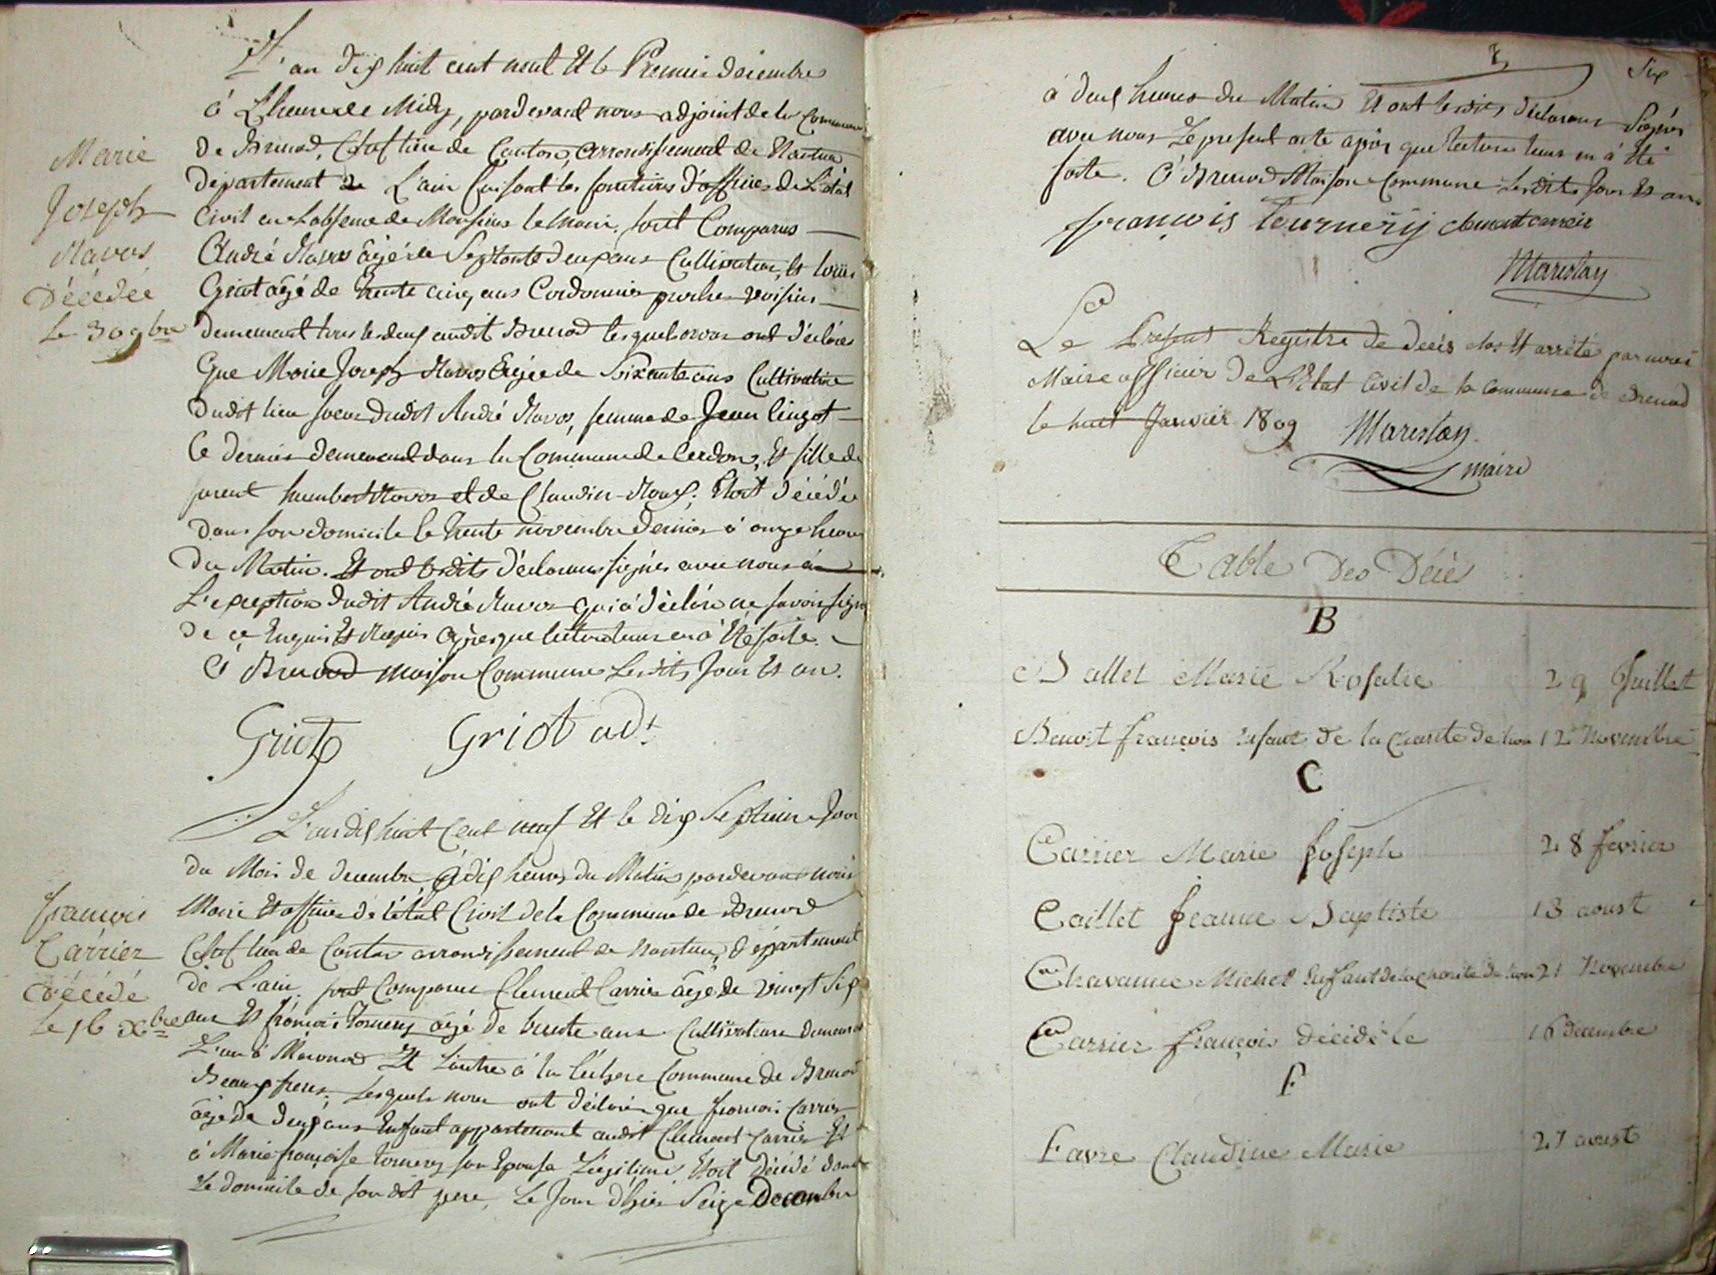 L'an dix huit cent neuf Et le Premier decembre
à L'heure de Midy, pardevant nous adjoint de la Commune
de Brenod, Chef lieu de Canton, arrondissement de Nantua
département de L'ain faisant les fonctions d'officier de L'état
Civil en L'absence de Monsieur le maire, sont Comparus
André Ravos âgé de Septante deux ans Cultivateur, Et Louis
Griot âgé de trente cinq ans Cordonnier proches voisins
demeurant tous les deux audit Brenod lesquels nous ont déclaré
Que Marie Joseph Ravos Agée de Soixante ans Cultivatrice
dudit lieu soeur dudit André Ravos, femme de Jean
Ce dernier demeurant dans la Commune de Cerdon, Et fille de
humbert Ravos et de Claudine Est décédée
dans son domicile le trente novembre dernier à onze heures
du Matin. Et ont lesdits déclarans signés avec nous à
L'exception dudit André Ravos qui à déclaré ne savoir signer
de ce Enquis Et Requis après que lecture leur en à Eté faite.
à Brenod maison Commune Lesdits Jour Et an.
Griot Griot adt
Marie
Joseph
Ravos
Décédée
le 30 9bre
L'an dix huit Cent neuf Et le dix Septieme Jour
du Mois de decembre à dix heures du Matin pardevant nous
Maire Et officier de l'état Civil de la Commune de Brenod
Chef lieu de Canton arrondissement de nantua, département
de L'ain sont Comparus Clement Carrier âgé de vingt Sept
ans Et françois Tournery âgé de trente ans Cultivateurs demeurant
L'un à Et L'autre à la Léchere Commune de Brenod
Beaux freres, Lesquels nous ont déclaré que françois Carrier
âgé de deux ans Enfant appartenant audit Clement Carrier Et
à Marie françoise tournery son Epouse Légitime, Est décédé dans
Le domicile de son dit pere, Le Jour d'hier Seize Decembre
françois
Carrier
décédé
le 16 Xbre
Six
à deux heures du Matin Et ont lesdits déclarans Signés
avec nous Le présent acte après que lecture leur en à Eté
faite. à Brenod Maison Commune Lesdits Jour Et an.
françois Tournery clement carrier
Marestay
Le Présent Registre de Décès clos Et arrêté par nous
Maire officier de L'Etat Civil de la commune de Brenod
le huit Janvier 1809 Marestay
maire
Table Des Décès
B
Ballet Marie Rosalie 29 Juillet
Benoit françois Enfant de la Charité de Lion 12 Novembre
C
Carrier Marie Joseph 28 fevrier
Caillet Jeanne Baptiste 13 aoust
Chavanne Michel Enfant de la charité de Lion 21 Novembre
Carrier françois décédé le 16 decembre
F
Favre Claudine Marie 27 aoust